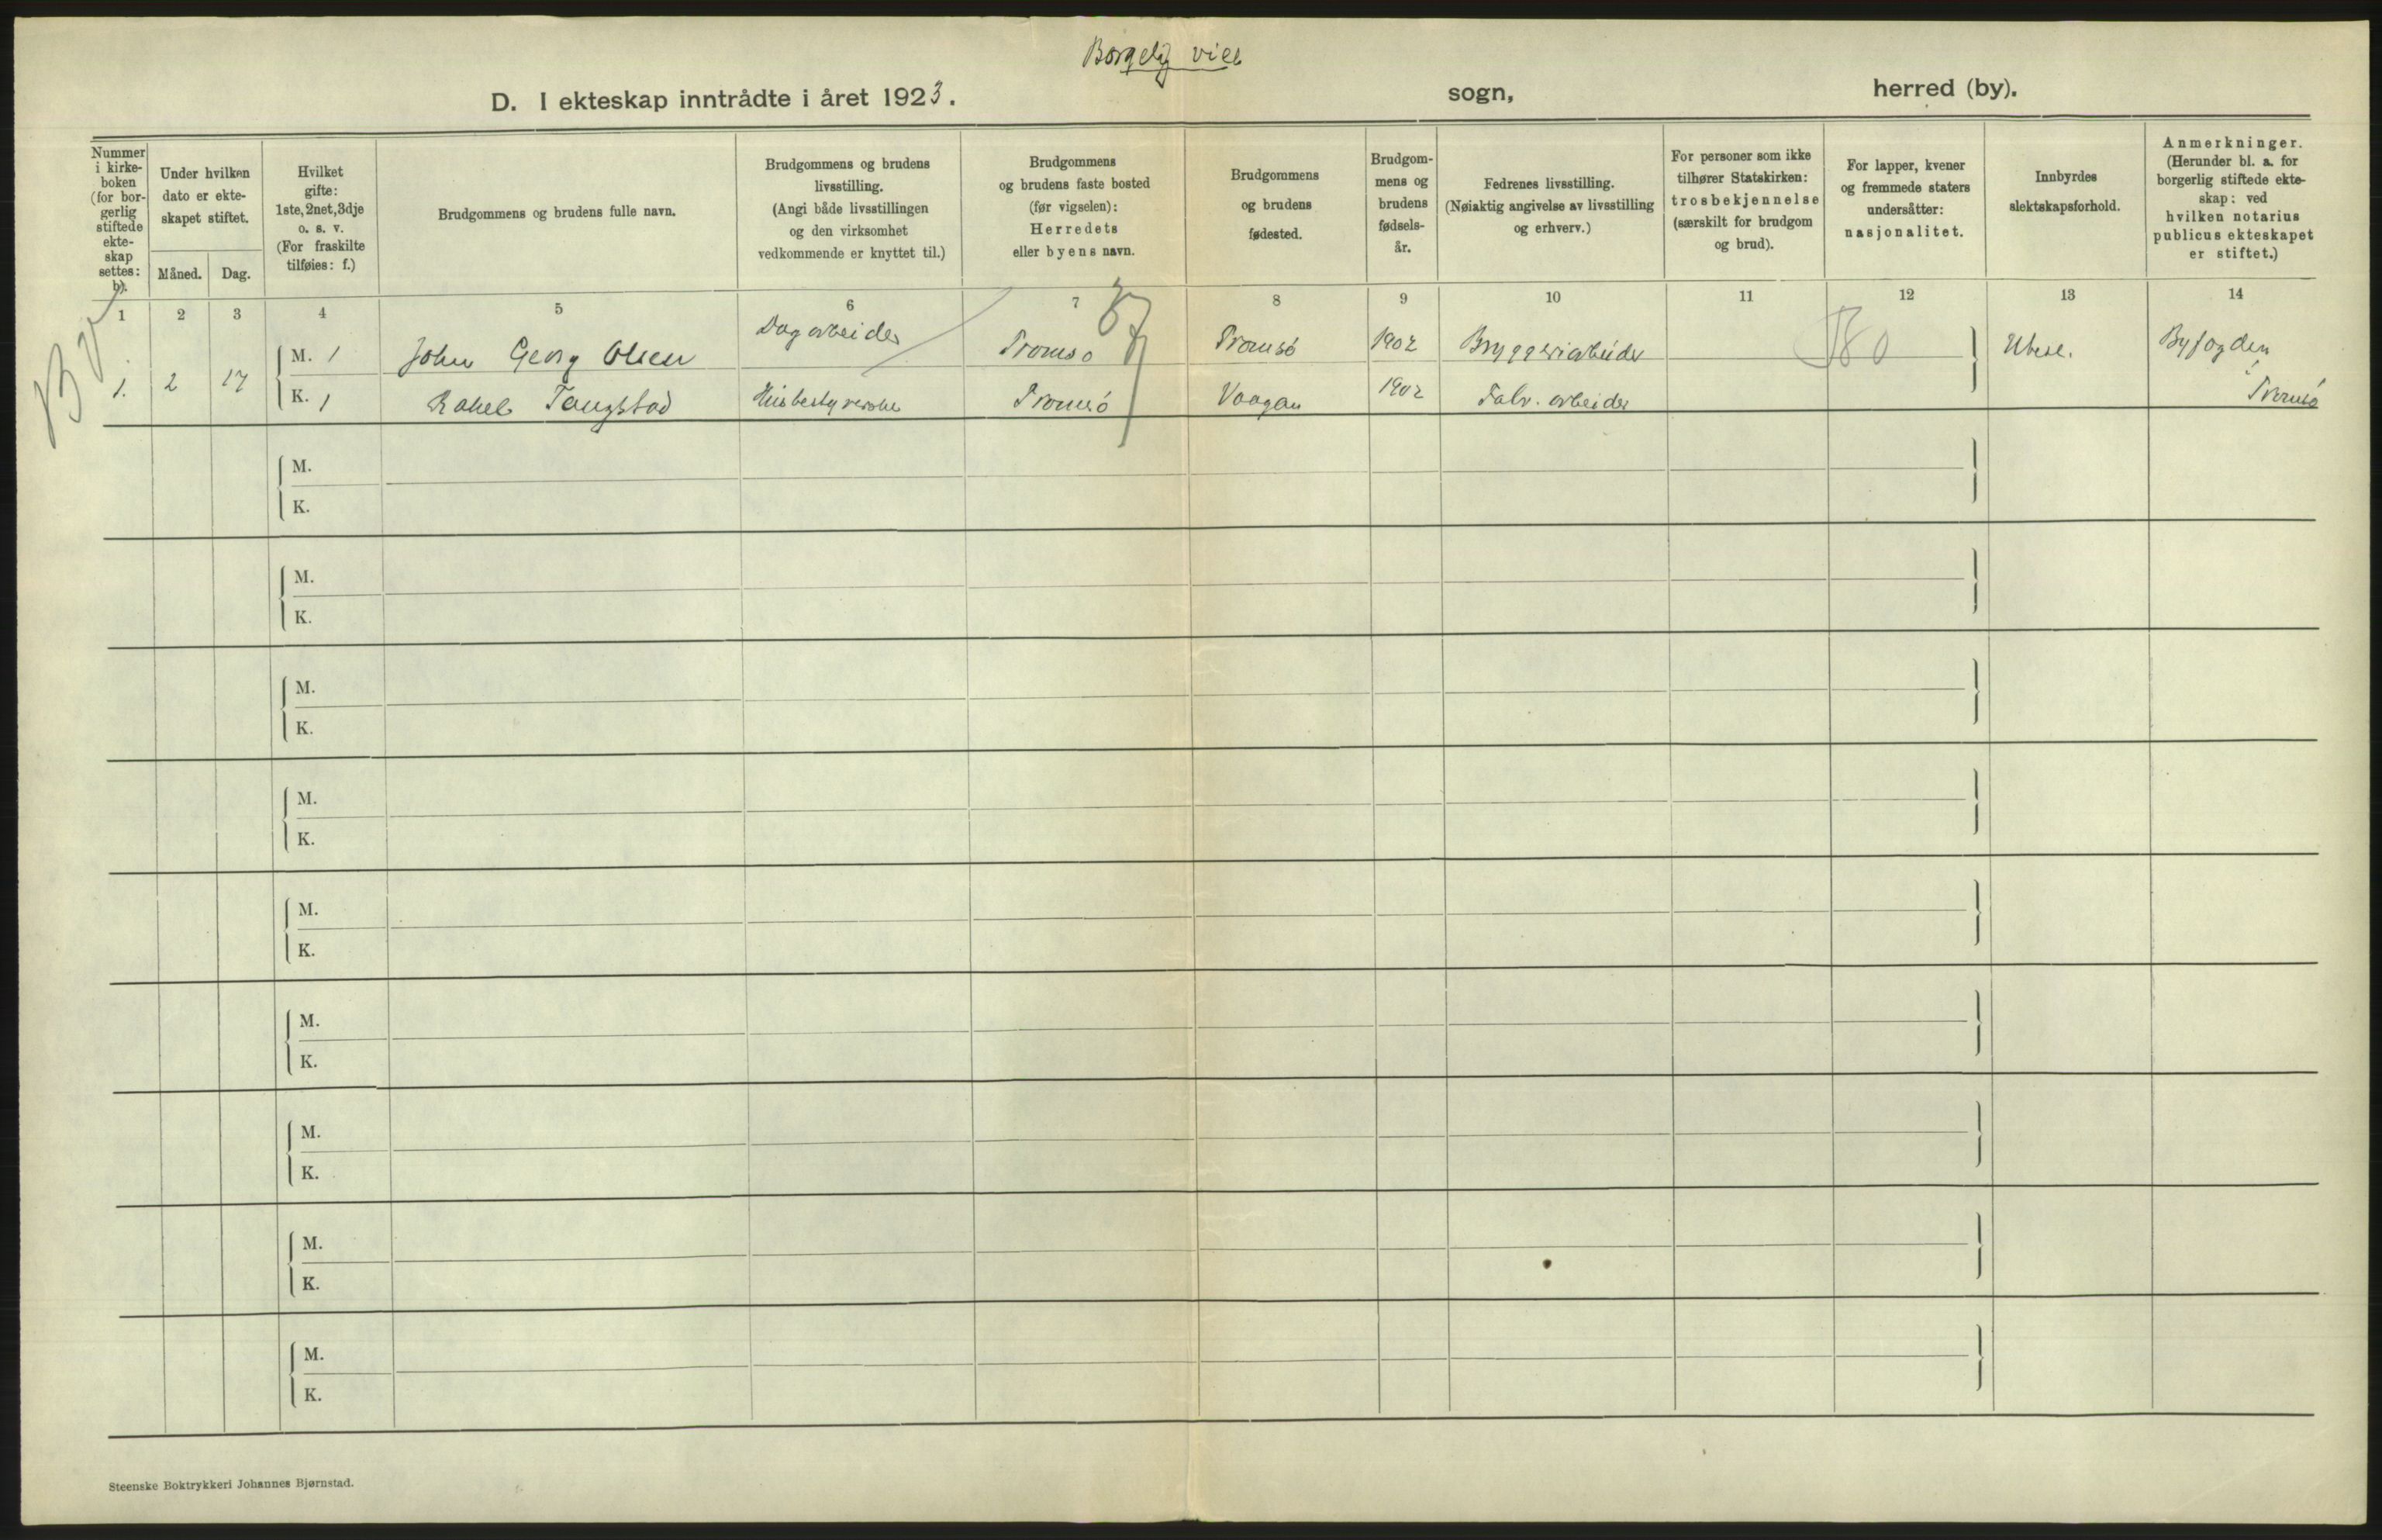 Borgelig viel
D. I ekteskap inntrådte i året 1923.
sogn,
herred (by).
Nummer
i kirke-
boken
(for bor-
gerlig
stiftede
ekte-
skap
settes:
b).
Under hvilken
dato er ekte-
skapet stiftet.
Måned.
Dag.
Hvilket
gifte:
1ste, 2net, 3dje
o. s. v.
(For fraskilte
tilføies: f.)
Brudgommens og brudens fulle navn.
Brudgommens og brudens
livsstilling.
(Angi både livsstillingen
og den virksomhet
vedkommende er knyttet til.)
Brudgommens
og brudens faste bosted
(før vigselen):
Herredets
eller byens navn.
Brudgommens
og brudens
fødested.
Brudgom-
mens og
brudens
fødsels-
år.
Fedrenes livsstilling.
(Nøiaktig angivelse av livsstilling
og erhverv.)
For personer som ikke
tilhører Statskirken:
trosbekjennelse
(særskilt for brudgom
og brud).
For lapper, kvener
og fremmede staters
undersåtter:
nasjonalitet.
Innbyrdes
slektskapsforhold.
Anmerkninger.
(Herunder bl. a. for
borgerlig stiftede ekte-
skap: ved
hvilken notarius
publicus ekteskapet
er stiftet.)
1 2 3 4 5 6 7 8 9 10 11 12 13 14
Bv
1. 2 17
M. 1 John Georg Olsen Dagarbeider Tromsø Tromsø 1902 Bryggeriarbeider Ubesl. Byfogden
K. 1 Rakel Tangstad Husbestyrerske Tromsø Vaagan 1902 Fabr. arbeider Tromsø
M.
K.
M.
K.
M.
K.
M.
K.
M.
K.
M.
K.
M.
K.
M.
K.
M.
K.
Steenske Boktrykkeri Johannes Bjørnstad.